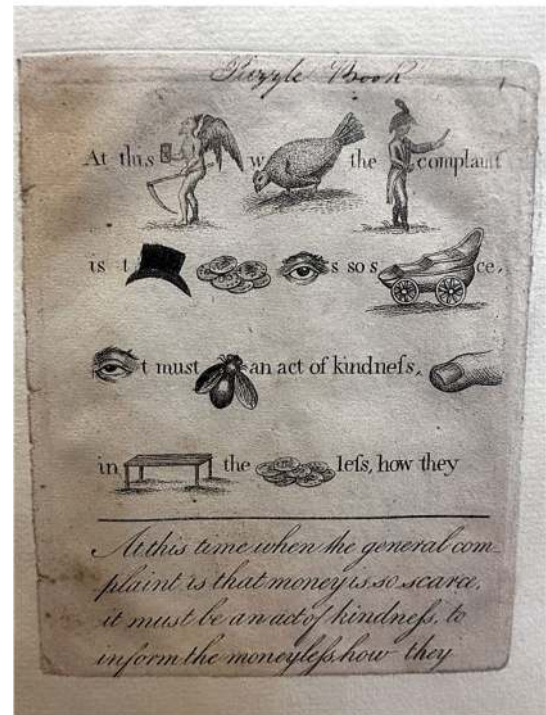 Puzzle Book
At this w the complaint
is t s so s ce,
t must an act of kindneſs,
in the leſs, how they
At this time when the general com-
plaint is that money is so scarce,
it must be an act of kindneſs, to
inform the moneyleſs, how they